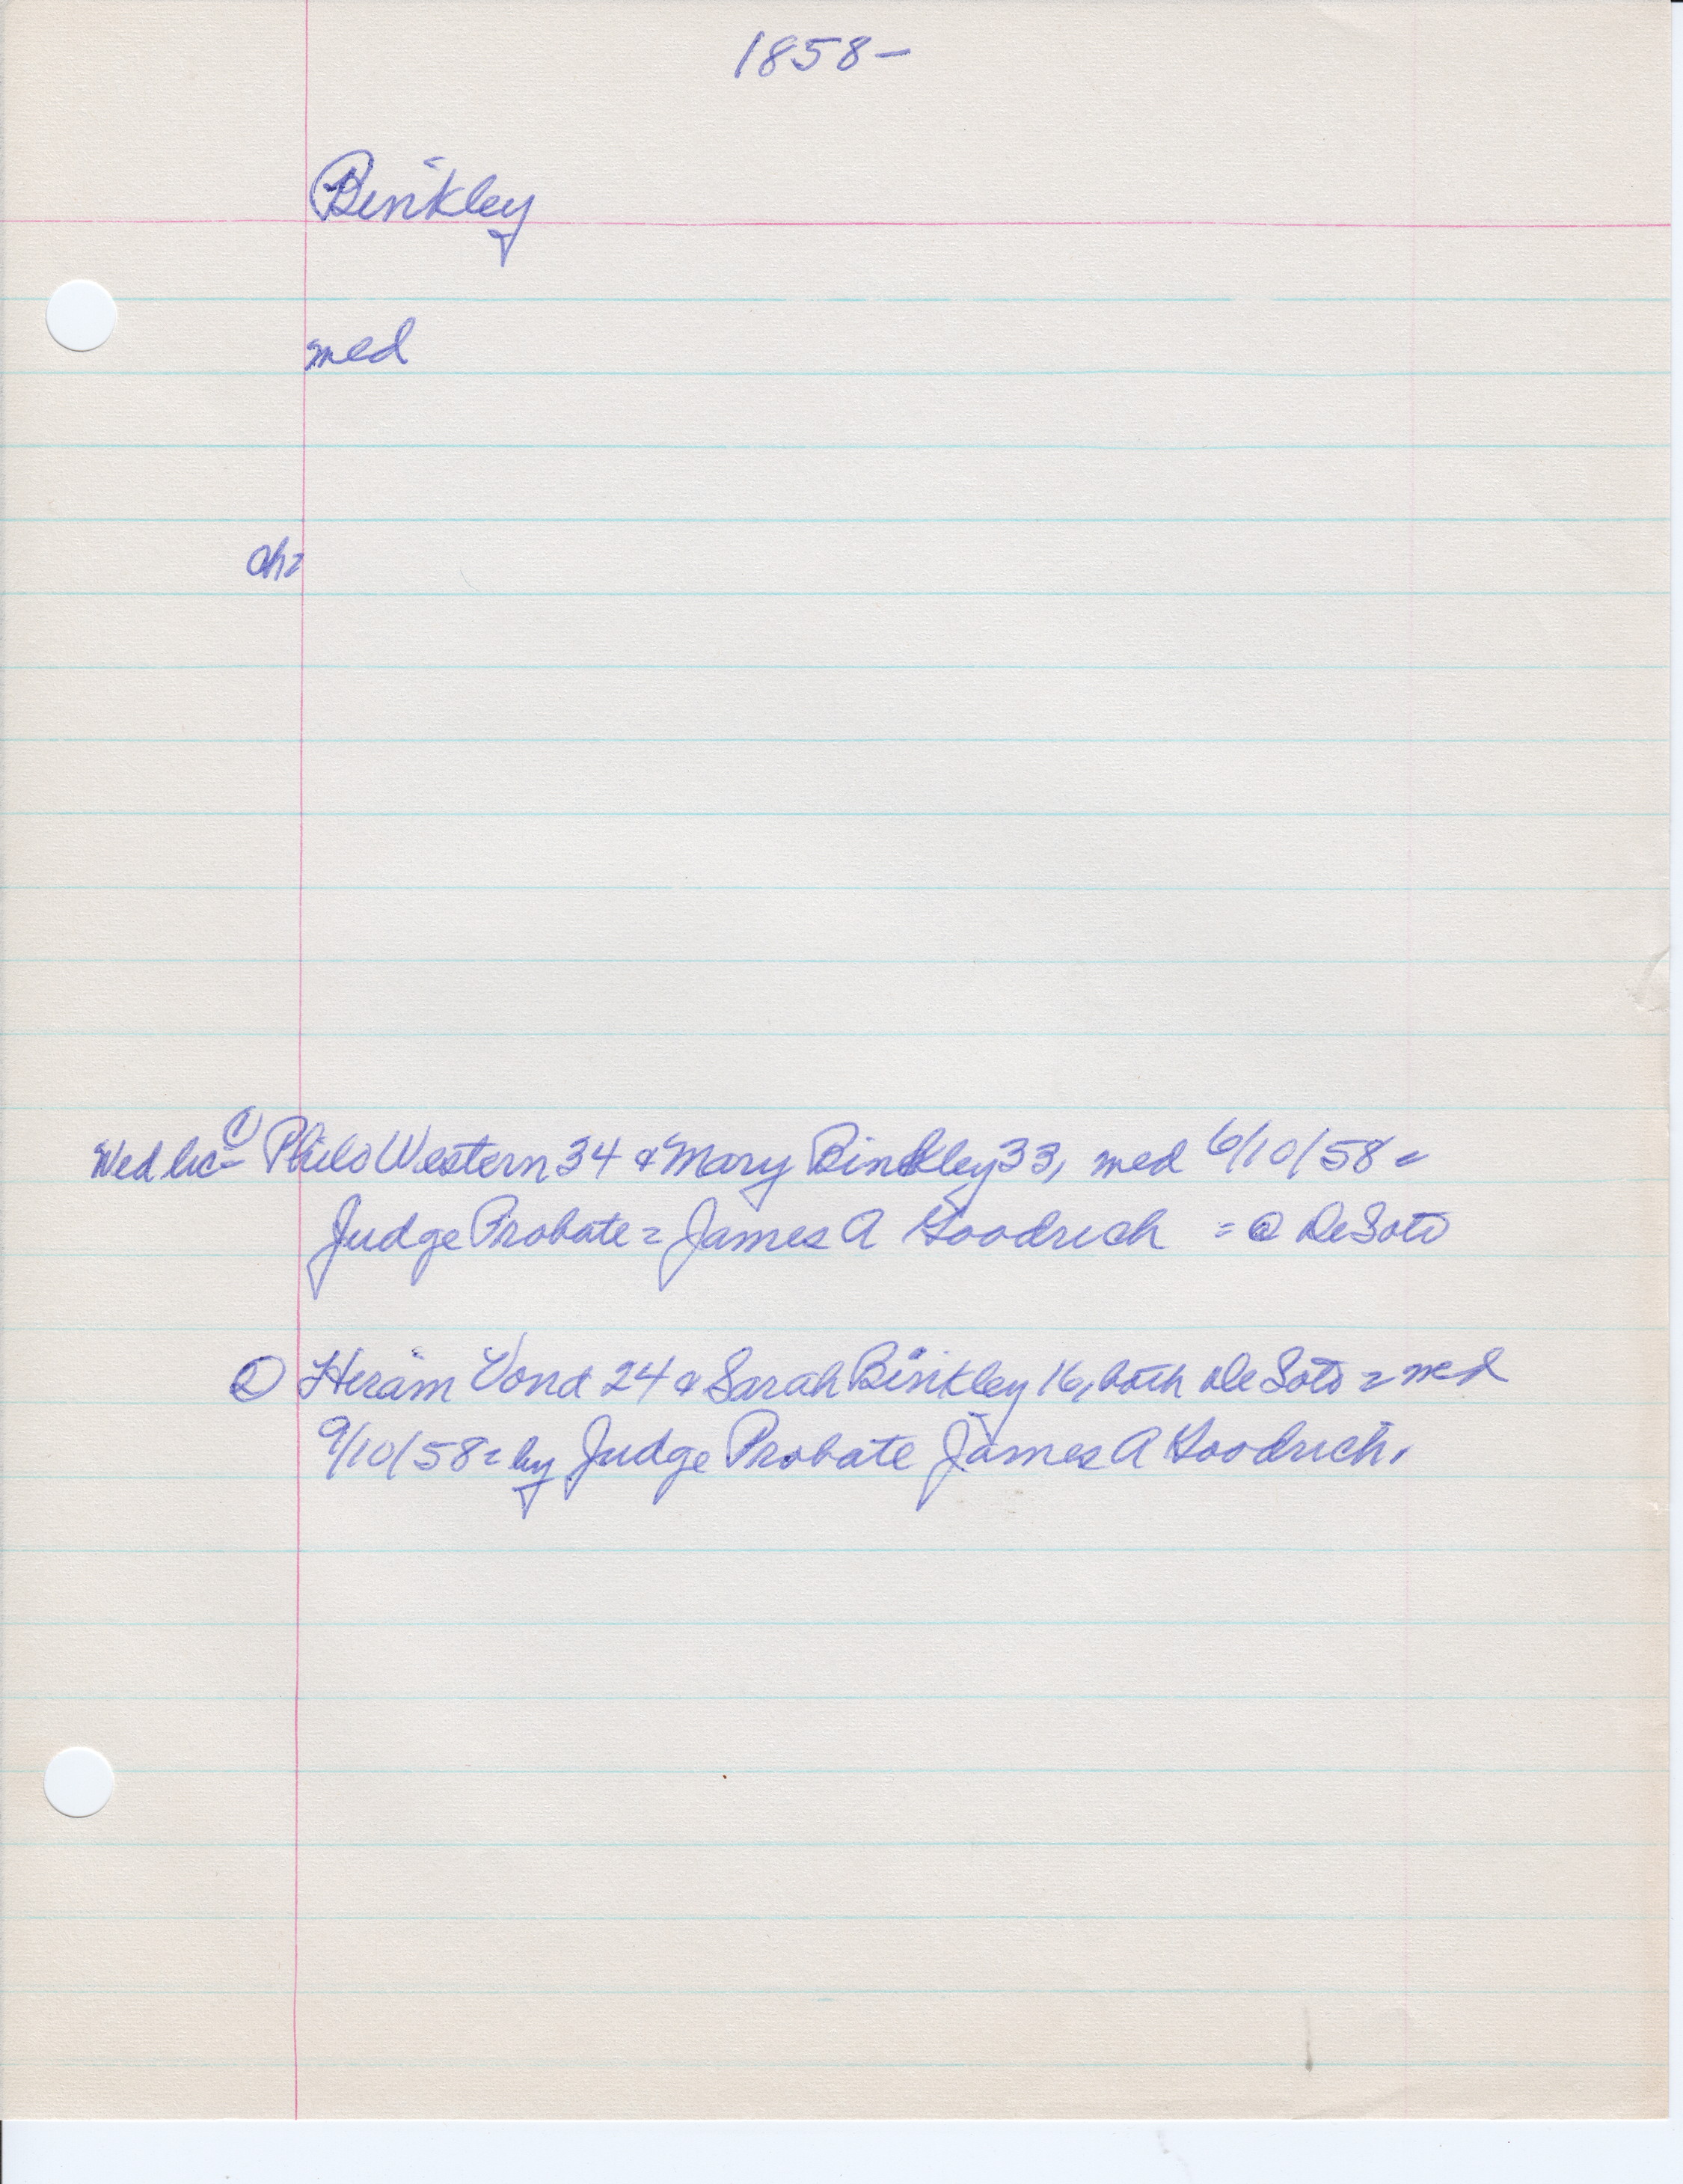 1858-
Binkley
med
ch=
Wed lic- ① Philo Western 34 & Mary Binkley 33, med 6/10/58 =
Judge Probate = James A Goodrich = @ DeSoto
② Hiram 24 & Sarah Binkley 16, both De Soto = med
9/10/58 = by Judge Probate James A Goodrich.